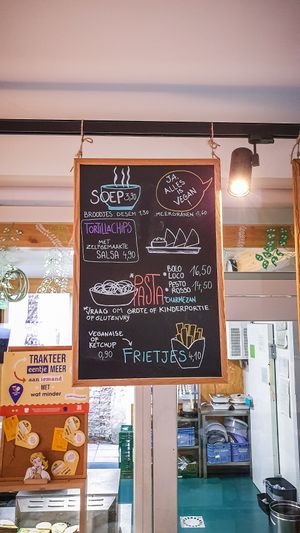 SOEP 3,30
JA, ALLES IS VEGAN
BROODJES DESEM 1,30
MEERGRANEN 1,40
TORTILLA CHIPS
MET ZELFGEMAAKTE
SALSA 4,90
*PASTA*
BOLO LOCO 16,50
PESTO ROSSO 14,50
*CHARMEZAN
*VRAAG OM GROTE OF KINDERPORTIE
OF GLUTENVRIJ
VEGANAISE OF
KETCHUP
0,90
FRIETJES 4,10
TRAKTEER
eentje MEER
aan iemand
MET
wat minder